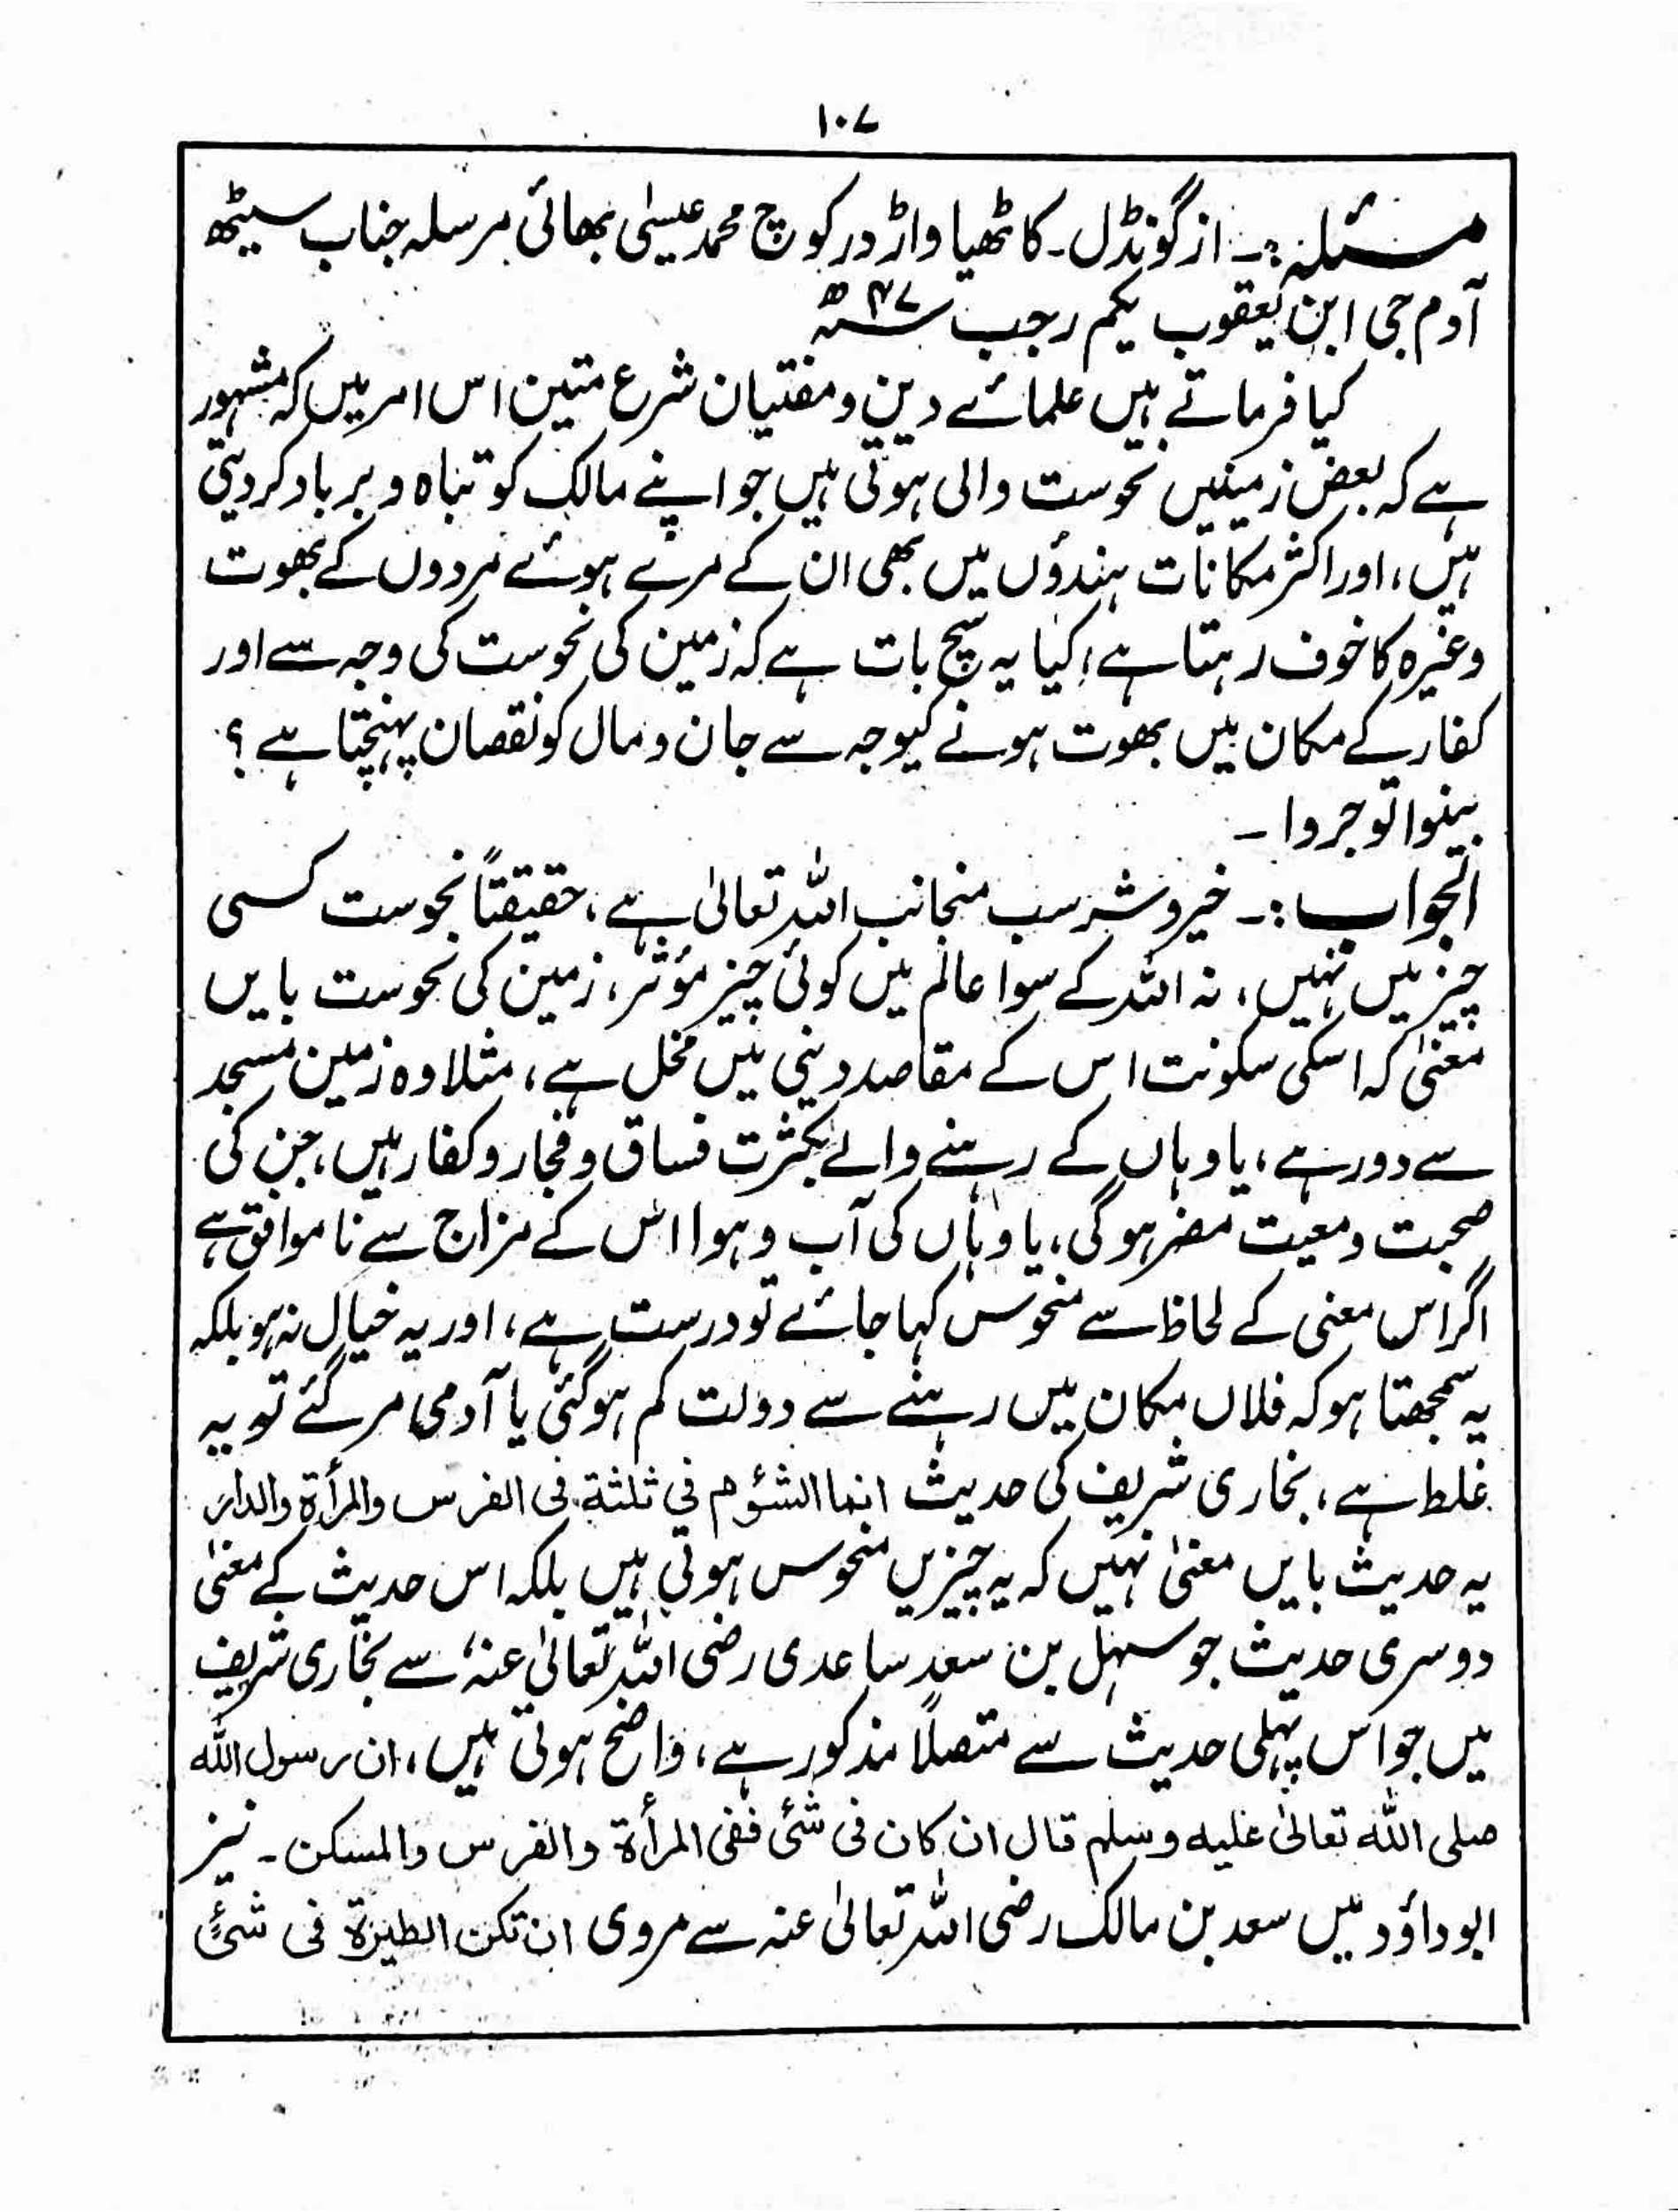 ۱۰۷
مسئلہ :۔ از گونڈل۔ کاٹھیاواڑ در کوچ محمد عیسیٰ بھائی مرسلہ جناب سیٹھ
آدم جی ابن یعقوب یکم رجب ۴۷ھ
کیا فرماتے ہیں علمائے دین و مفتیان شرع متین اس امر میں کہ مشہور
ہے کہ بعض زمینیں نحوست والی ہوتی ہیں جو اپنے مالک کو تباہ و برباد کر دیتی
ہیں، اور اکثر مکانات ہندؤں میں بھی ان کے مرے ہوئے مردوں کے بھوت
وغیرہ کا خوف رہتا ہے، کیا یہ سچ بات ہے کہ زمین کی نحوست کی وجہ سے اور
کفار کے مکان میں بھوت ہونے کیوجہ سے جان و مال کو نقصان پہنچتا ہے ؟
بینوا توجروا ۔
الجواب :۔ خیر و شر سب منجانب اللہ تعالیٰ ہے، حقیقتاً نحوست کسی
چیز میں نہیں، نہ اللہ کے سوا عالم میں کوئی چیز مؤثر، زمین کی نحوست بایں
معنیٰ کہ اسکی سکونت اس کے مقاصد دینی میں مخل ہے، مثلا وہ زمین مسجد
سے دور ہے، یا وہاں کے رہنے والے بکثرت فساق و فجار و کفار ہیں، جن کی
صحبت و معیت مضر ہوگی، یا وہاں کی آب و ہوا اس کے مزاج سے نا موافق ہے
اگر اس معنی کے لحاظ سے منحوس کہا جائے تو درست ہے، اور یہ خیال نہ ہو بلکہ
یہ سمجھتا ہو کہ فلاں مکان میں رہنے سے دولت کم ہوگئی یا آدمی مر گئے تو یہ
غلط ہے، بخاری شریف کی حدیث انما الشؤم فی ثلثة فی الفرس والمرأة والدار
یہ حدیث بایں معنیٰ نہیں کہ یہ چیزیں منحوس ہوتی ہیں بلکہ اس حدیث کے معنیٰ
دوسری حدیث جو سہل بن سعد ساعدی رضی اللہ تعالیٰ عنہ سے بخاری شریف
میں جو اس پہلی حدیث سے متصلاً مذکور ہے، واضح ہوتی ہیں، ان رسول اللہ
صلی اللہ تعالیٰ علیہ وسلم قال ان کان فی شئ ففی المرأة والفرس والمسکن۔ نیز
ابوداؤد میں سعد بن مالک رضی اللہ تعالیٰ عنہ سے مروی ان تکن الطیرة فی شئ